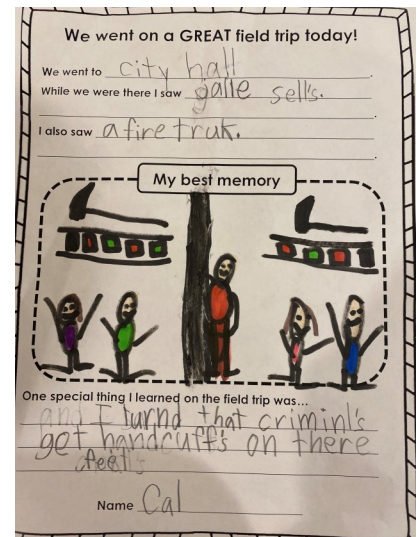 We went on a GREAT field trip today!
We went to city hall.
While we were there I saw galle sells.
I also saw a fire truk.
My best memory
One special thing I learned on the field trip was...
and I turnd that criminl's
get handcuffs on there
feet
Name Cal